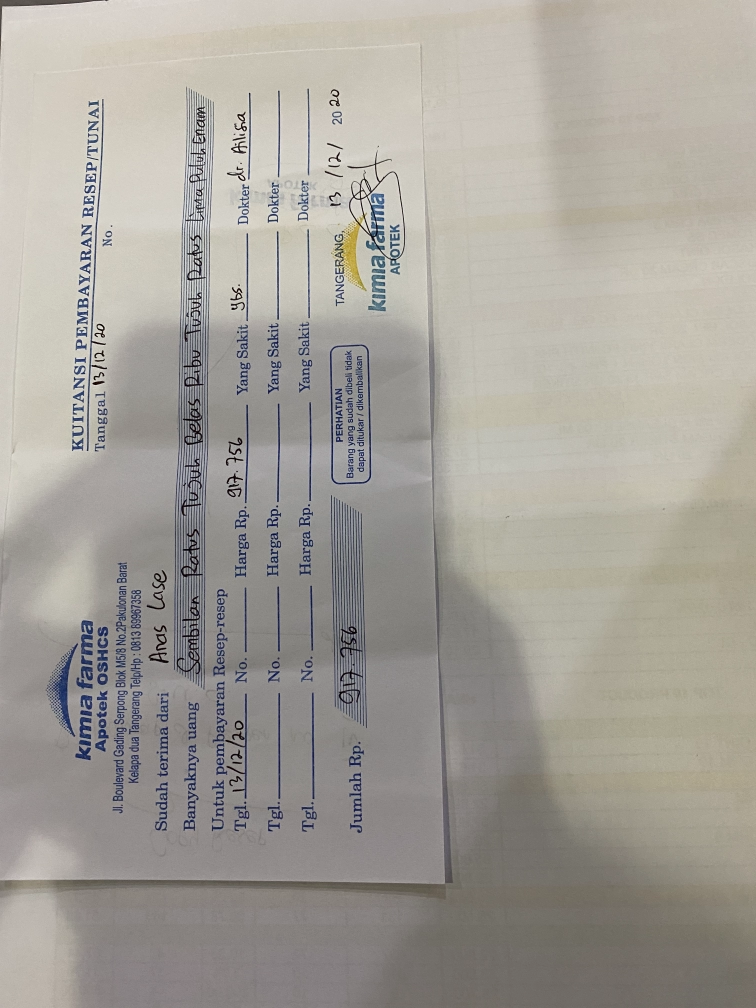 kimia farma
Apotek OSHCS
Jl. Boulevard Gading Serpong Blok M5/8 No.2Pakulonan Barat
Kelapa dua Tangerang Telp/Hp : 0813 89967358
KUITANSI PEMBAYARAN RESEP/TUNAI
Tanggal 13/12/20 No.
Sudah terima dari Anas Lase
Banyaknya uang Sembilan Ratus Tujuh Belas Ribu Tujuh Ratus Lima Puluh Enam
Untuk pembayaran Resep-resep
Tgl. 13/12/20 No. Harga Rp. 917.756 Yang Sakit ybs. Dokter dr. Ailisa
Tgl. No. Harga Rp. Yang Sakit Dokter
Tgl. No. Harga Rp. Yang Sakit Dokter
Jumlah Rp. 917.756
PERHATIAN
Barang yang sudah dibeli tidak
dapat ditukar / dikembalikan
TANGERANG, 13 /12/ 20 20
kimia farma
APOTEK